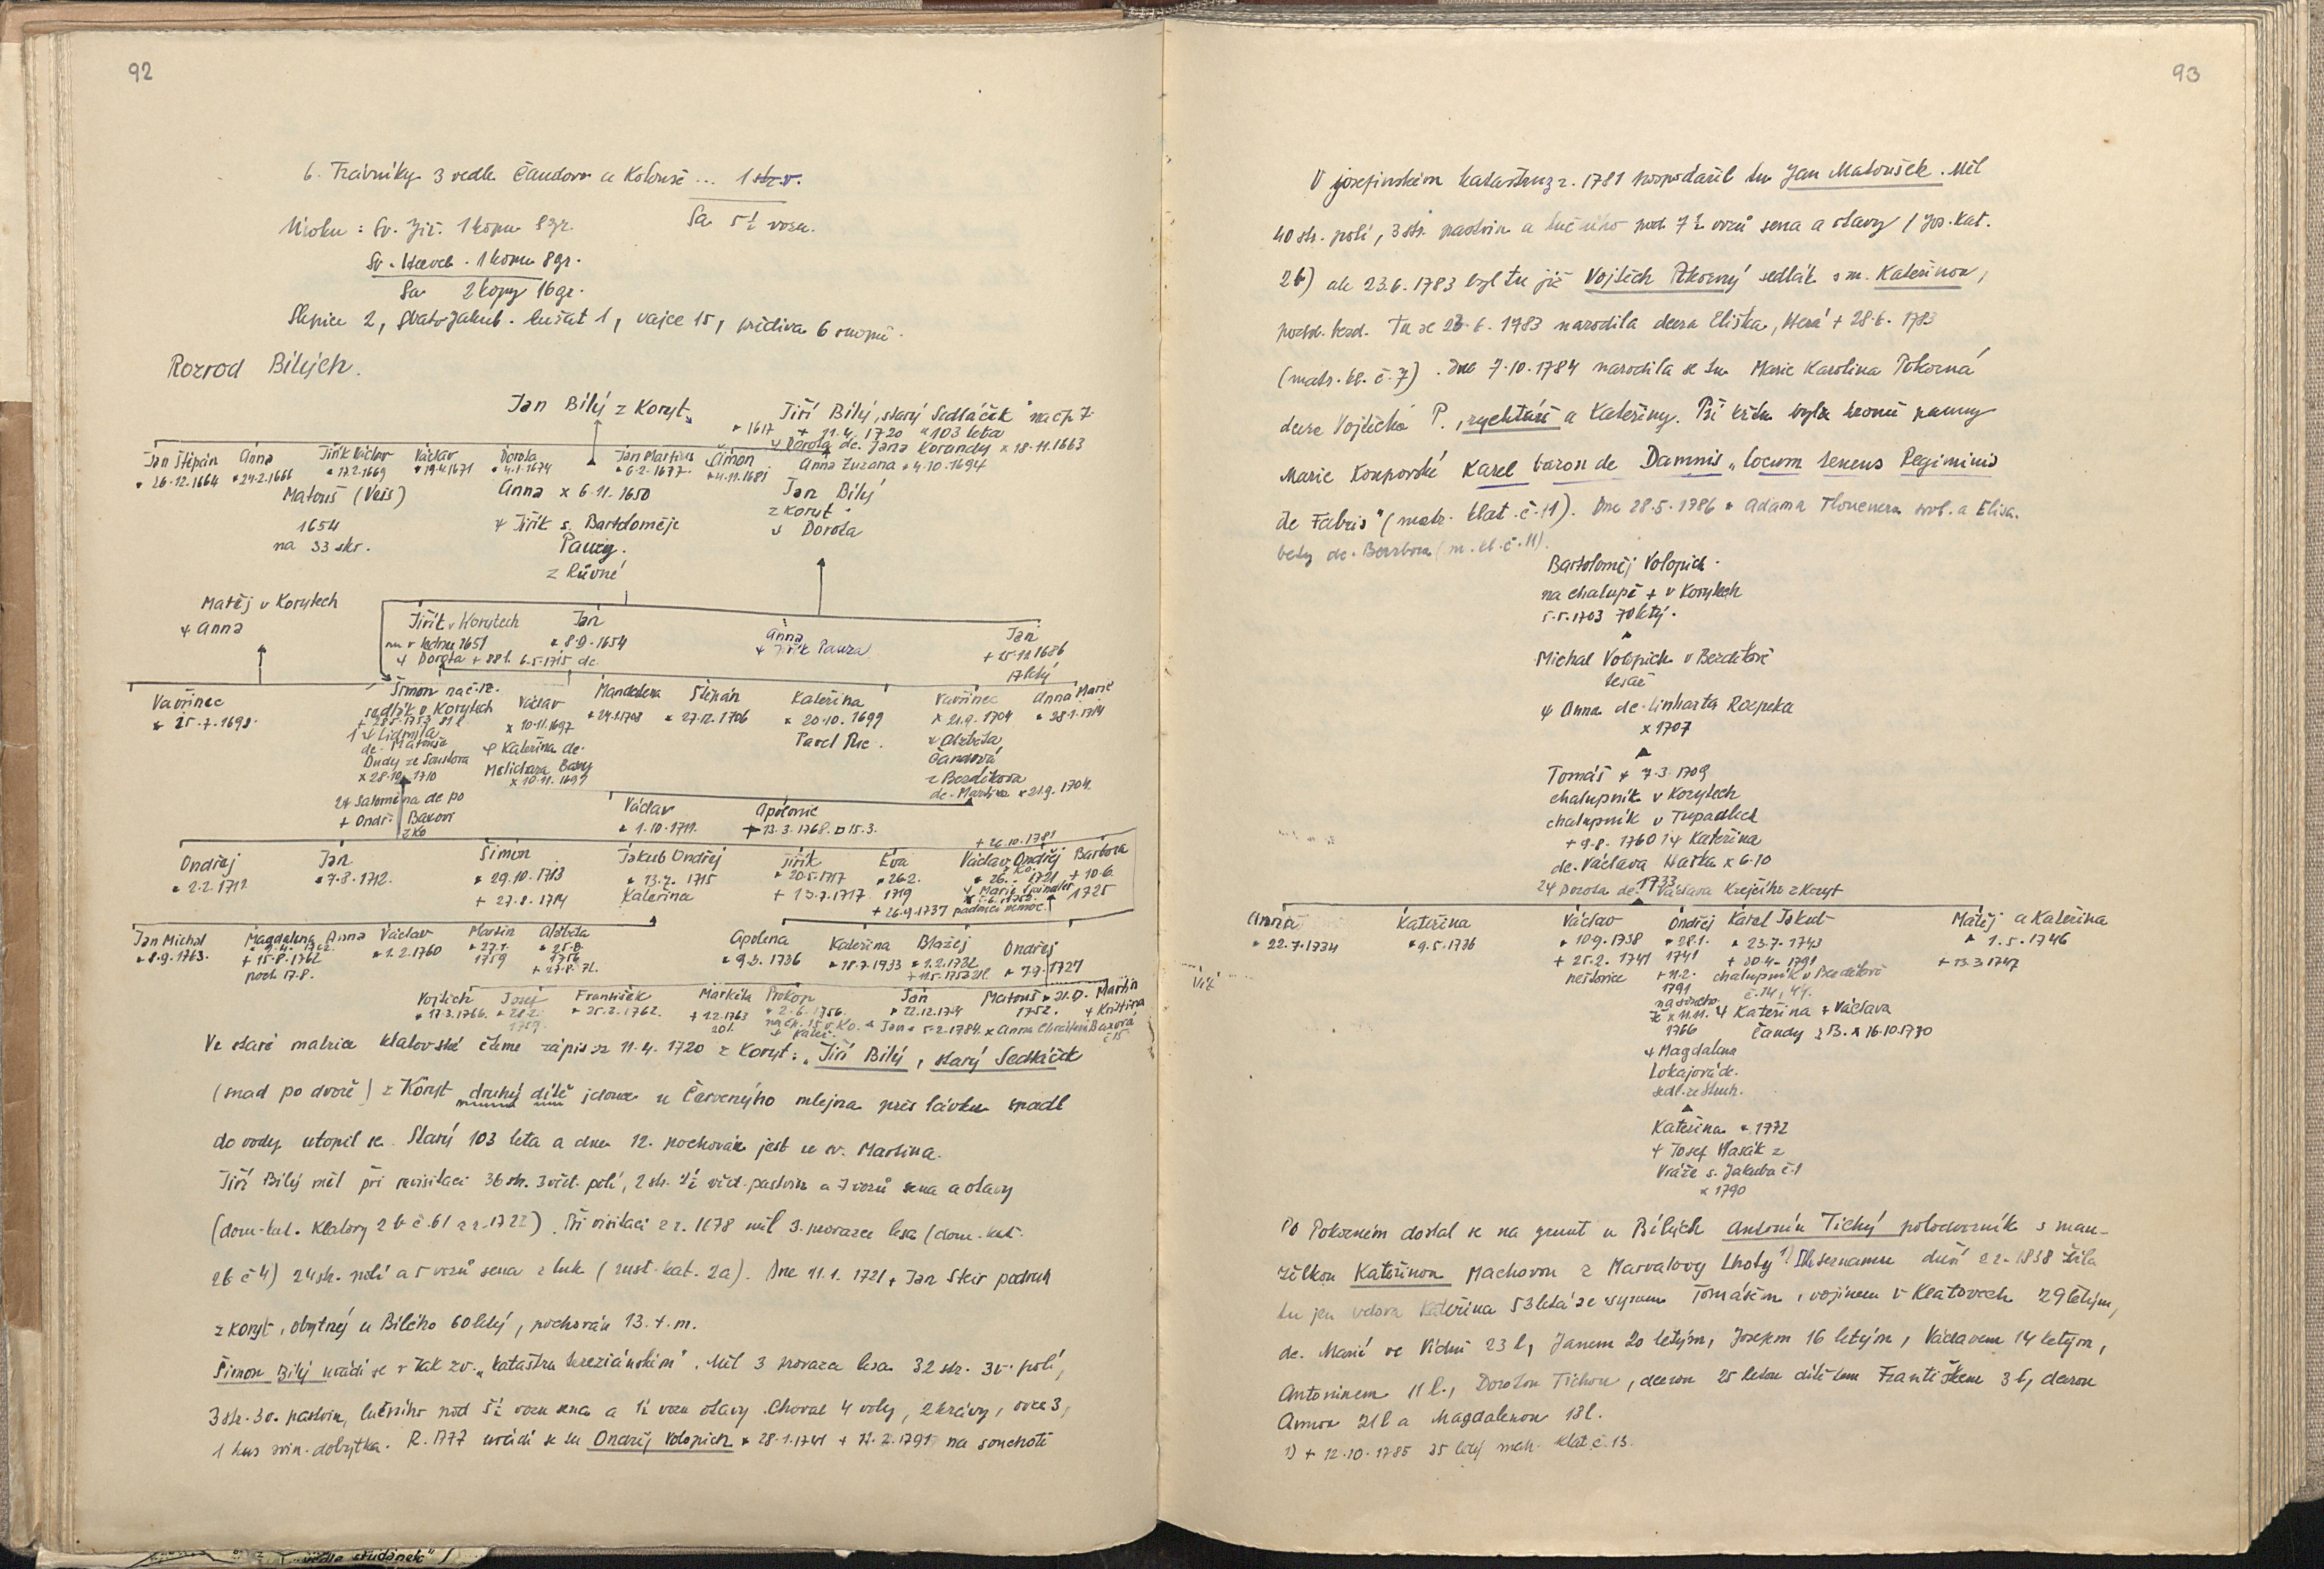 92
6. Trávníky 3 vedle Čandova a Kolouše ... 1 str. v.
Sa 5½ vozu.
Úroku: Sv. Jiř. 1 kopu 8 gr.
Sv. Havel. 1 kopu 8 gr.
Sa 2 kopy 16 gr.
Slepice 2, Svato Jakub. kuřat 1, vajec 15, přediva 6
Rozrod Bílých.
Jan Bílý z Koryt
Jiří Bílý, starý Sedláček" na čp 7.
* 1617 + 11.4. 1720 "103 leta
Dorota dc. Jana Korandy x 18.11.1663
Jan Štěpán * 26.12.1664
Anna * 24.2.1666
Jiřík Václav * 17.2.1669
Václav * 19.4.1671
Dorota * 4.1.1674
Jan Martin * 6.2.1677.
Šimon * 4.11.1681
Anna Zuzana * 4.10.1694
Matouš (Veis)
1654
na 33 str.
Anna x 6.11.1650
Jiřík s. Bartoloměje
Pauzy.
z Růvné
Jan Bílý
z Koryt
Dorota
Matěj v Korytech
Anna
Jiřík v Korytech
1651
Dorota + 88 l. 6.5.1715 dc.
Jan
* 8.9.1654
Anna
Jiřík Pauza
Jan
+ 25.12.1686
17 letý
Vavřinec
* 25.7.1698.
Šimon na č. 12.
sedlák v Korytech
81 l
1 Lidmila
dc. Matouše
Dudy ze Soustova
x 28.10.1710
2 Salomena dc po
+ Ondř. Baxovi
z Ko
Václav
x 10.11.1697
Kateřina dc.
Melichara Baxy
x 10.11.1697
Mandelena
* 24.1.1708
Štěpán
* 27.12.1706
Kateřina
* 20.10.1699
Pavel
Vavřinec
* 21.9.1704
Alžběta
Čandová
z Bezděkova
dc. Martina x 21.9.1704
Anna Marie
* 28.1.1714
Václav
* 1.10.1711.
Apolonie
+ 13.3.1768. □ 15.3.
Ondřej
* 2.2.1712
Jan
* 7.8.1712.
Šimon
* 29.10.1713
+ 27.8.1714
Jakub Ondřej
* 13.7.1715
Kateřina
Jiřík
* 20.5.1717
+ 13.7.1717
Eva
* 26.2.
1719
+ 26.9.1737 padoucí nemoc.
+ 26.10.1781
Václav Ondřej
1721
Marie
Barbora
+ 10.6.
1725
Jan Michal
* 8.9.1763.
Magdalena
+ 15.8.1762
poch. 17.8.
Anna
Václav
* 1.2.1760
Martin
* 27.1.
1759
Alžběta
* 25.8.
1756
+ 27.8. 71.
Apolena
* 9.2.1736
Kateřina
* 18.7.1733
Blažej
* 1.2.1732
Ondřej
* 7.9.1727
Vojtěch
* 17.3.1766.
Josef
* 28.2.
1759.
František
* 25.2.1762.
Markéta
+ 1.2.1763
20 l.
Prokop
* 2.6.1756.
na čp. 15 v Ko.
Kateř.
Jan
* 22.12.1724
Jan * 5.2.1784. x Anna
Matouš * 21.9.
1752.
Martin
Kristina
Baxová
č 15
Ve staré matrice klatovské čteme zápis z 11.4. 1720 z Koryt: „Jiří Bílý, starý Sedláček
(snad po dvoře) z Koryt druhý dítě jdouce u Červenýho mlejna přes lávku spadl
do vody utopil se. Starý 103 leta a dne 12. pochován jest u sv. Martina.
Jiří Bílý měl při revisitaci 36 str. 3 věrt. polí, 2 str. 1½ věrt. pastvin a 7 vozů sena a otavy
(dom. kat. Klatovy 2 b č. 61 z r. 1722). Při visitaci z r. 1678 měl 3. provazce lesa (dom. kat.
2b č 4) 24 str. polí a 5 vozů sena z luk (rust. kat. 2a). Dne 11.1. 1721 + Jan Skir podruh
z Koryt, obytný u Bílého 60 letý, pochován 13. t. m.
Šimon Bílý uvádí se v tak zv. „katastru tereziánském". Měl 3 provazce lesa 32 str. 3 v. polí,
3 str. 3 v. pastvin, lučního pod 5½ vozu sena a 1½ vozu otavy. Choval 4 voly, 2 krávy, ovce 3,
1 kus svin. dobytka. R. 1777 uvádí se tu Ondřej Volopich * 28.1.1741 + 12.2.1791 na souchotě
93
V josefinském katastru z r. 1781 hospodařil tu Jan Matoušek. Měl
40 str. polí, 3 str. pastvin a lučního pod 7½ vozů sena a otavy (Jos. kat.
26) ale 23.6.1783 byl tu již Vojtěch Pokorný sedlák s m. Kateřinou,
Tu se 23.6.1783 narodila dcera Eliška, která + 28.6. 1783
(matr. kl. č. 7). Dne 7.10.1784 narodila se tu Marie Karolina Pokorná
dcera Vojtěcha P., rychtáře a Kateřiny. Při křtu byla kromě panny
Marie Konporské Karel baron de Damnis „locum tenens Regiminis
de Fabris" (matr. klat. č. 11). Dne 28.5.1786 * Adama svob. a Elisa-
bety dc. Barbora (m. kl. č. 11).
Bartoloměj Volopich.
na chalupě + v Korytech
5.5.1703 70 letý.
Michal Volopich v Bezděkově
tesař
Anna dc. Linharta Rzepeka
x 1707
Tomáš * 7.3.1709
chalupník v Korytech
chalupník v Tupadlech
+ 9.8.1760 1 Kateřina
dc. Václava Haška x 6.10
1733
2 Dorota dc. Václava Krejčího z Koryt
Anna
* 22.7.1734
Kateřina
* 9.5.1736
Václav
* 10.9.1738
+ 25.2.1741
neštovice
Ondřej
* 28.1.
1741
+ 12.2.
1791
na souchotě
x 11.11.
1766
Magdalena
Lokajová dc.
sedl. ze Struh.
Karel Jakub
* 23.7.1743
+ 30.4.1791
chalupník v Bezděkově
č. 14, 47.
Kateřina + Václava
Čandy z B. x 16.10.1770
Matěj a Kateřina
* 1.5.1746
+ 13.3.1747
Viz
Kateřina * 1772
Josef Vlasák z
Vráže s. Jakuba č. 1
x 1790
Po Pokorném dostal se na grunt u Bílých Antonín Tichý polodvorník s man-
želkou Kateřinou Machovou z Marvalovy Lhoty 1) Dle seznamu duší z r. 1838 žila
tu jen vdova Kateřina 53 letá se synem Tomášem, vojínem v Klatovech 29 letým,
dc. Marií ve Vídni 23 l, Janem 20 letým, Josefem 16 letým, Václavem 14 letým,
Antonínem 11 l., Dorotou Tichou, dcerou 25 letou dítětem Františkem 3 l, dcerou
Annou 21 l a Magdalenou 18 l.
1) + 12.10.1785 35 letý matr. Klat. č. 13.
vedle studánek"